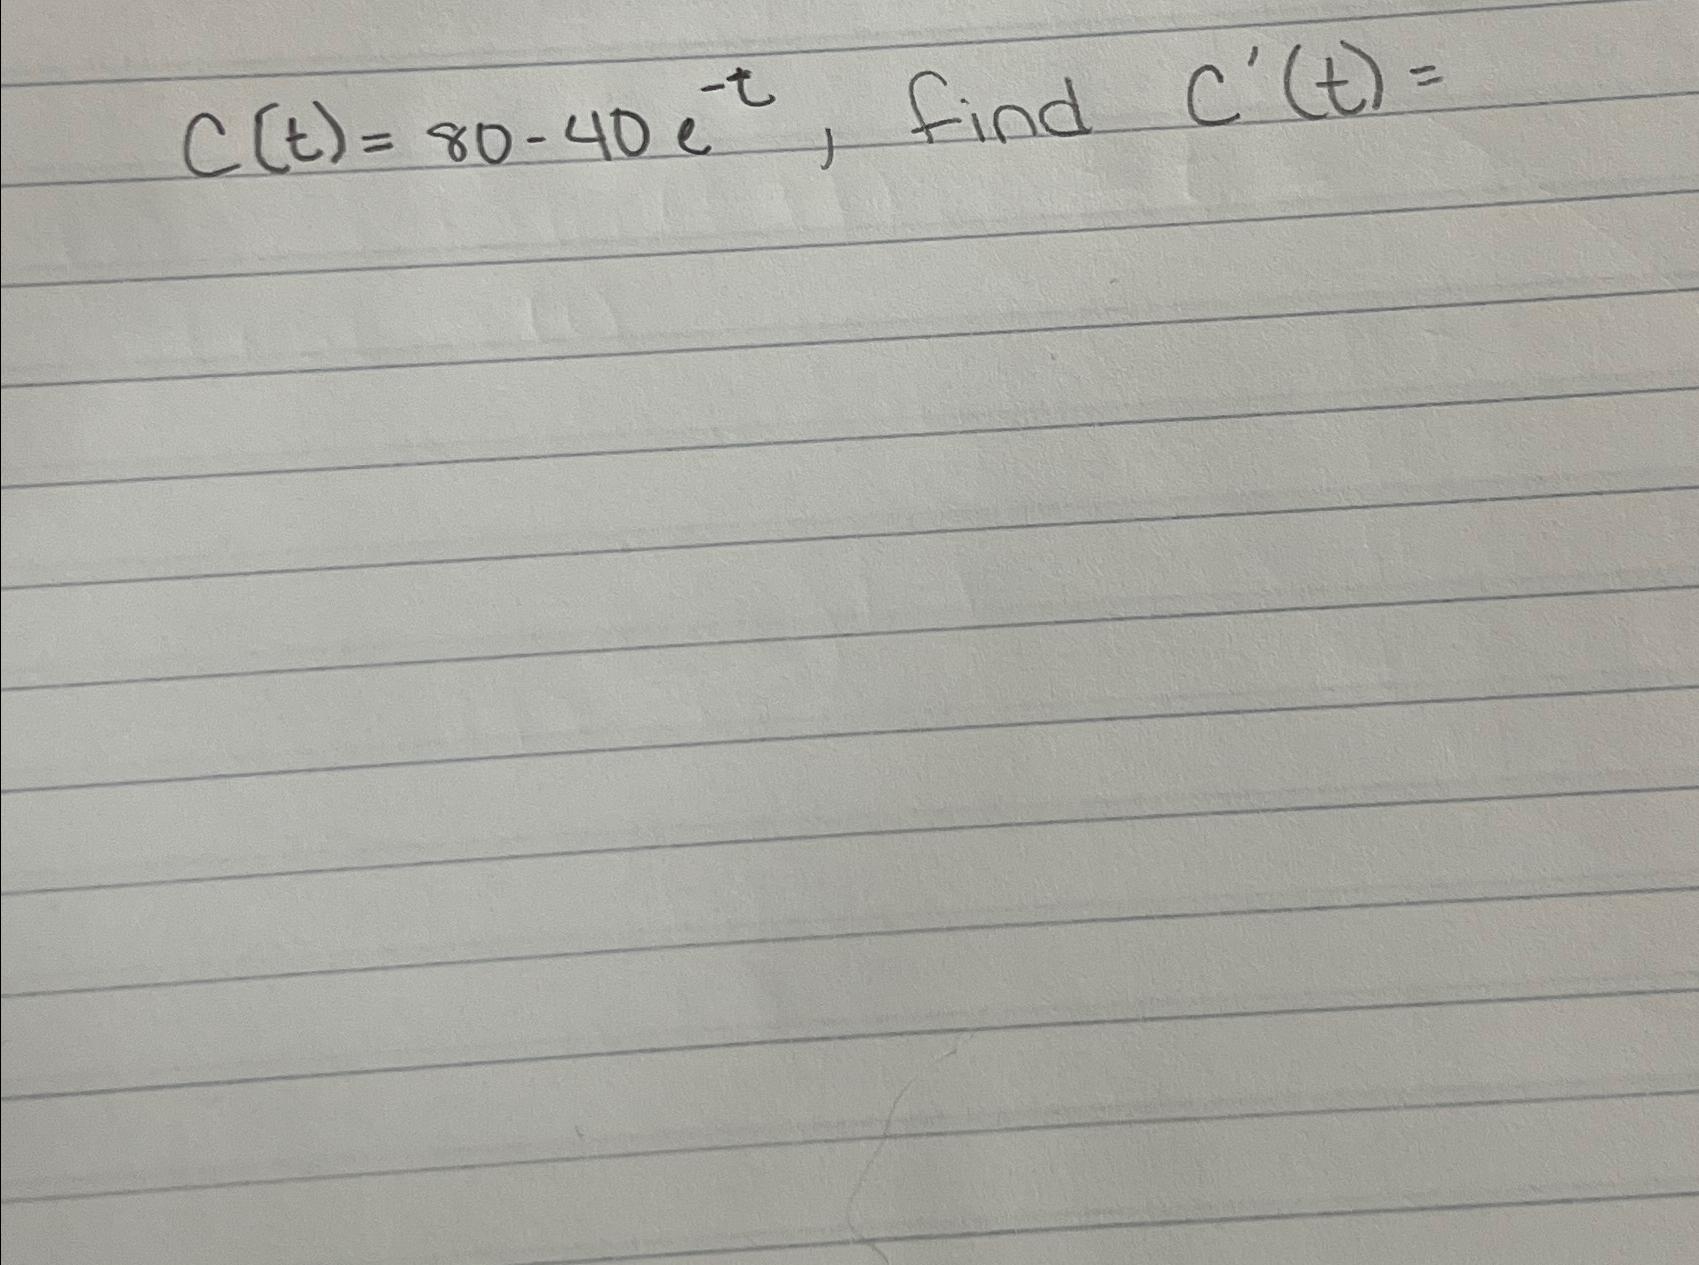 C(t) = 80 - 40 e^-t , find C'(t) =